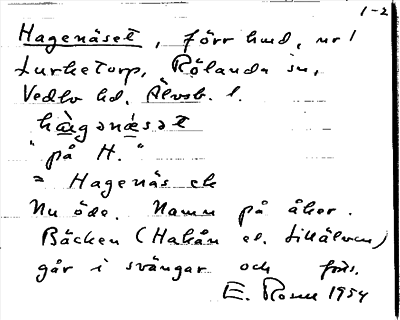 1-2
Hagenäset, förr hmd, nr 1
Lurketorp, Rölanda sn,
Vedbo hd. Älvsb. l.
hàgənǽsət
"på H."
= Hagenäs ek
Nu öde. Namn på åker.
Bäcken (Hakån el. Lillälven)
går i svängar och
E. Rosell 1954